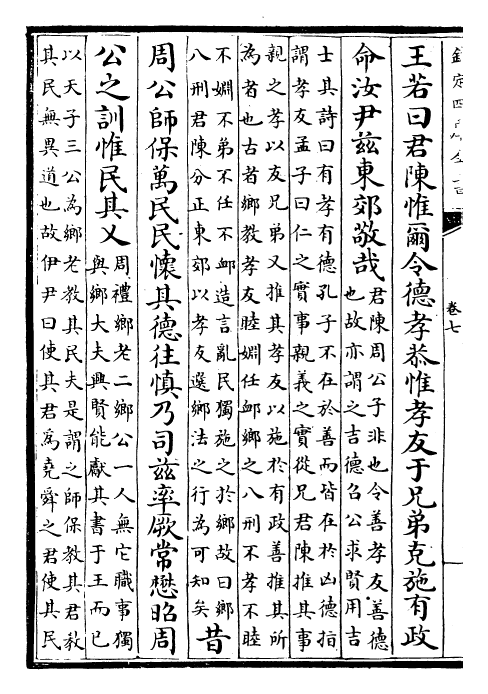 欽定四庫全書
卷七
王若曰君陳惟爾令德孝恭惟孝友于兄弟克施有政
命汝尹茲東郊敬哉
君陳周公子非也令善孝友善德
也故亦謂之吉德召公求賢用吉
士其詩曰有孝有德孔子不在於善而皆在於凶德指
謂孝友孟子曰仁之實事親義之實從兄君陳推其事
親之孝以友兄弟又推其孝友以施於有政善推其所
為者也古者鄉教孝友睦婣任卹鄉之八刑不孝不睦
不婣不弟不任不卹造言亂民獨施之於鄉故曰鄉
八刑君陳分正東郊以孝友選鄉法之行為可知矣
昔
周公師保萬民民懷其德往慎乃司茲率厥常懋昭周
公之訓惟民其乂
周禮鄉老二鄉公一人無它職事獨
與鄉大夫興賢能獻其書于王而已
以天子三公為鄉老教其民夫是謂之師保教其君教
其民無異道也故伊尹曰使其君爲堯舜之君使其民